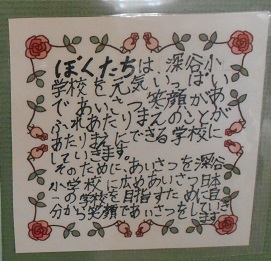 ぼくたちは 深谷小
学校を元気いっぱい
であいさつ、笑顔があ
ふれあたりまえのことが
あたりまえにできる学校に
していきます。
そのために、あいさつを深谷
小学校に広めあいさつ日本
一の学校を目指すために自
分から笑顔であいさつをしていき
ます